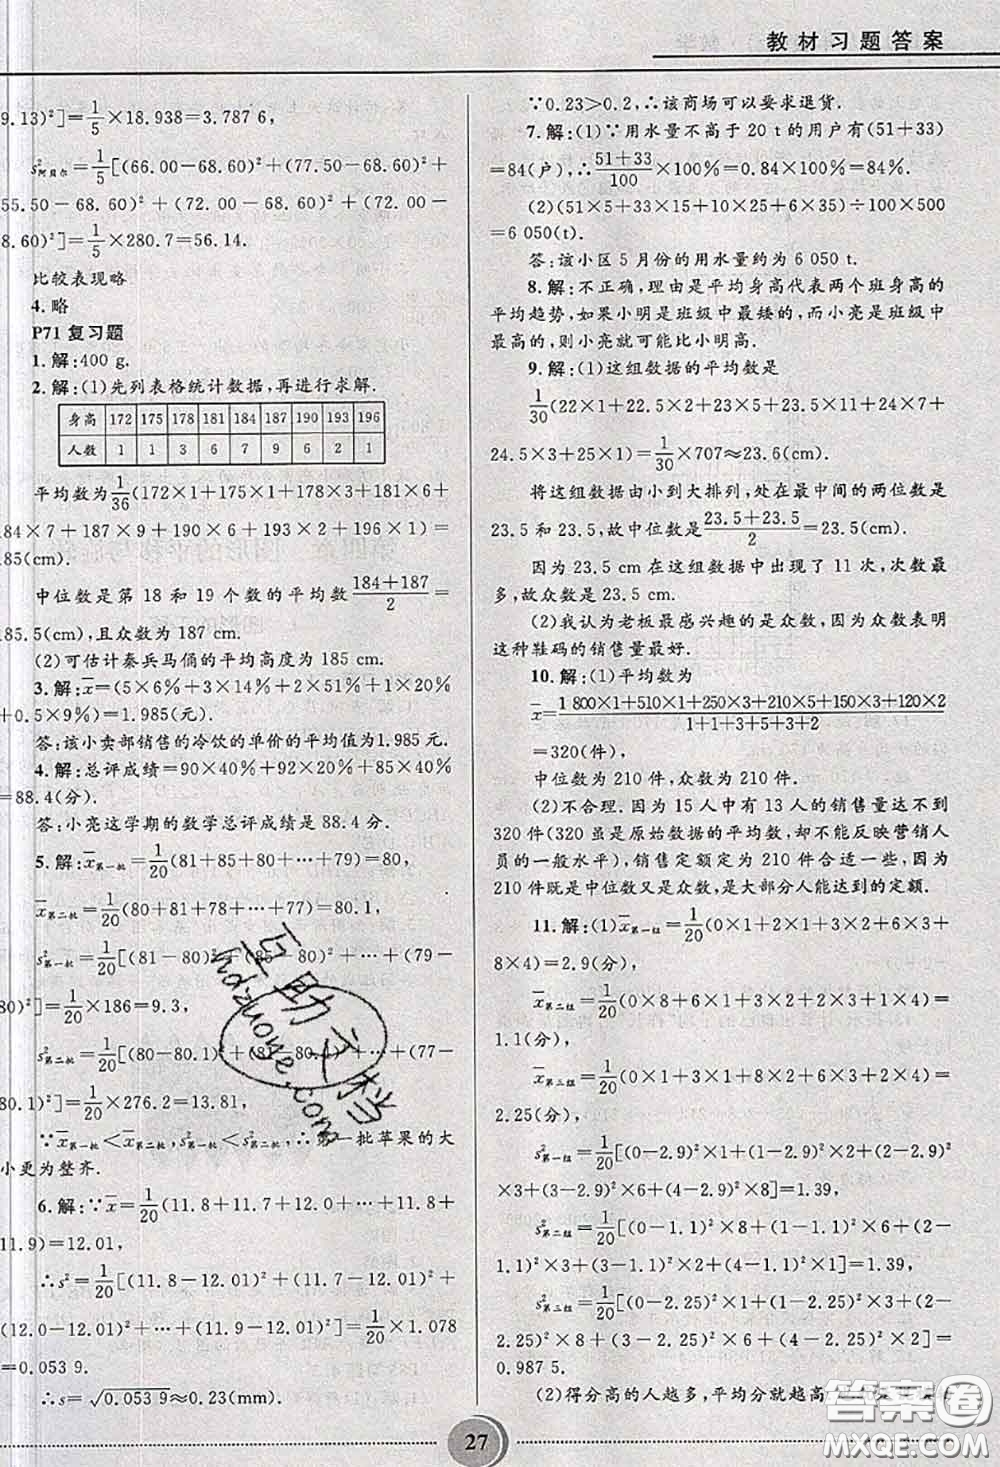 教材习题答案
9.13)²]=1/5×18.938=3.787 6,
s²阿贝尔=1/5[(66.00-68.60)²+(77.50-68.60)²+
55.50-68.60)²+(72.00-68.60)²+(72.00-
8.60)²]=1/5×280.7=56.14.
比较表现略
4.略
P71 复习题
1.解:400 g.
2.解:(1)先列表格统计数据,再进行求解.
身高 172 175 178 181 184 187 190 193 196
人数 1 1 3 6 7 9 6 2 1
平均数为1/36(172×1+175×1+178×3+181×6+
184×7+187×9+190×6+193×2+196×1)=
185(cm).
中位数是第 18 和 19 个数的平均数(184+187)/2=
185.5(cm),且众数为 187 cm.
(2)可估计秦兵马俑的平均高度为 185 cm.
3.解:x̄=(5×6%+3×14%+2×29%+1×42%
+0.5×9%)=1.985(元).
答:该小卖部销售的冷饮的单价的平均值为1.985 元.
4.解:总评成绩=90×40%+92×20%+85×40%
=88.4(分).
答:小亮这学期的数学总评成绩是 88.4 分.
5.解:x̄第一批=1/20(81+85+80+…+79)=80,
x̄第二批=1/20(80+81+78+…+77)=80.1,
s²第一批=1/20[(81-80)²+(85-80)²+…+(79-
80)²]=1/20×186=9.3,
s²第二批=1/20[(80-80.1)²+(81-80.1)²+…+(77-
80.1)²]=1/20×276.2=13.81,
∵x̄第一批<x̄第二批,s²第一批<s²第二批,∴第一批苹果的大
小更为整齐.
6.解:∵x̄=1/20(11.8+11.7+12.0+…+11.8+
11.9)=12.01,
∴s²=1/20[(11.8-12.01)²+(11.7-12.01)²+
(12.0-12.01)²+…+(11.9-12.01)²]=1/20×1.078
=0.053 9.
∴s=√0.053 9≈0.23(mm).
∵0.23>0.2,∴该商场可以要求退货.
7.解:(1)∵用水量不高于 20 t的用户有(51+33)
=84(户),∴(51+33)/100×100%=0.84×100%=84%.
(2)(51×5+33×15+10×25+6×35)÷100×500
=6 050(t).
答:该小区 5 月份的用水量约为 6 050 t.
8.解:不正确,理由是平均身高代表两个班身高的
平均趋势,如果小明是班级中最矮的,而小亮是班级中
最高的,则小亮就可能比小明高.
9.解:(1)这组数据的平均数是
1/30(22×1+22.5×2+23×5+23.5×11+24×7+
24.5×3+25×1)=1/30×707≈23.6(cm).
将这组数据由小到大排列,处在最中间的两位数是
23.5 和 23.5,故中位数是(23.5+23.5)/2=23.5(cm).
因为 23.5 cm 在这组数据中出现了 11 次,次数最
多,故众数是 23.5 cm.
(2)我认为老板最感兴趣的是众数,因为众数表明
这种鞋码的销售量最好.
10.解:(1)平均数为
x̄=(1 800×1+510×1+250×3+210×5+150×3+120×2)/(1+1+3+5+3+2)
=320(件),
中位数为 210 件,众数为 210 件.
(2)不合理.因为 15 人中有 13 人的销售量达不到
320 件(320 虽是原始数据的平均数,却不能反映营销人
员的一般水平),销售定额定为 210 件合适一些,因为
210 件既是中位数又是众数,是大部分人能达到的定额.
11.解:(1)x̄第一组=1/20(0×1+2×1+3×2+6×3+
8×4)=2.9(分),
x̄第二组=1/20(0×8+6×1+3×2+2×3+1×4)=
1.1(分),
x̄第三组=1/20(0×1+3×1+8×2+6×3+2×4)=
2.25(分),
s²第一组=1/20[(0-2.9)²×1+(1-2.9)²×2+(2-2.9)²
×3+(3-2.9)²×6+(4-2.9)²×8]=1.39,
s²第二组=1/20[(0-1.1)²×8+(1-1.1)²×6+(2-
1.1)²×3+(3-1.1)²×2+(4-1.1)²×1]=1.39,
s²第三组=1/20[(0-2.25)²×1+(1-2.25)²×3+(2-
2.25)²×8+(3-2.25)²×6+(4-2.25)²×2]=
0.987 5.
(2)得分高的人越多,平均分就越高
27
互助文档
hdzuoye.com
答案圈
MXQE.COM